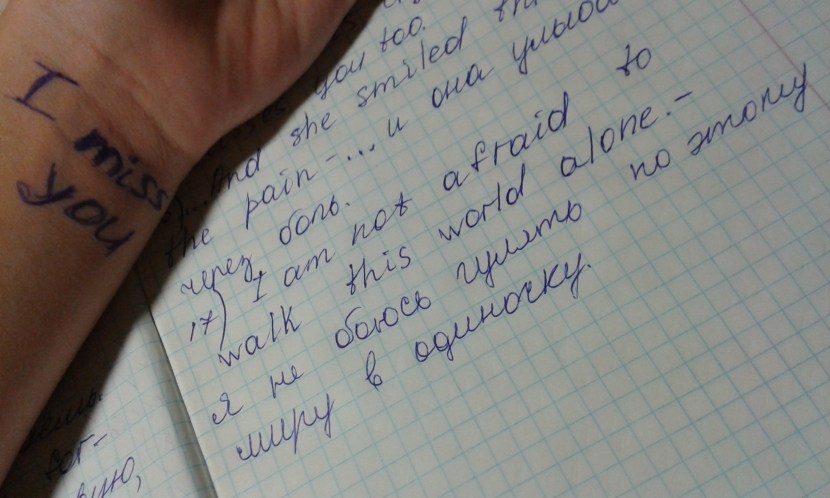 I miss
you
you too.
...And she smiled
the pain - ... и она
через боль.
17) I am not afraid to
walk this world alone. -
я не боюсь гулять по этому
миру в одиночку.